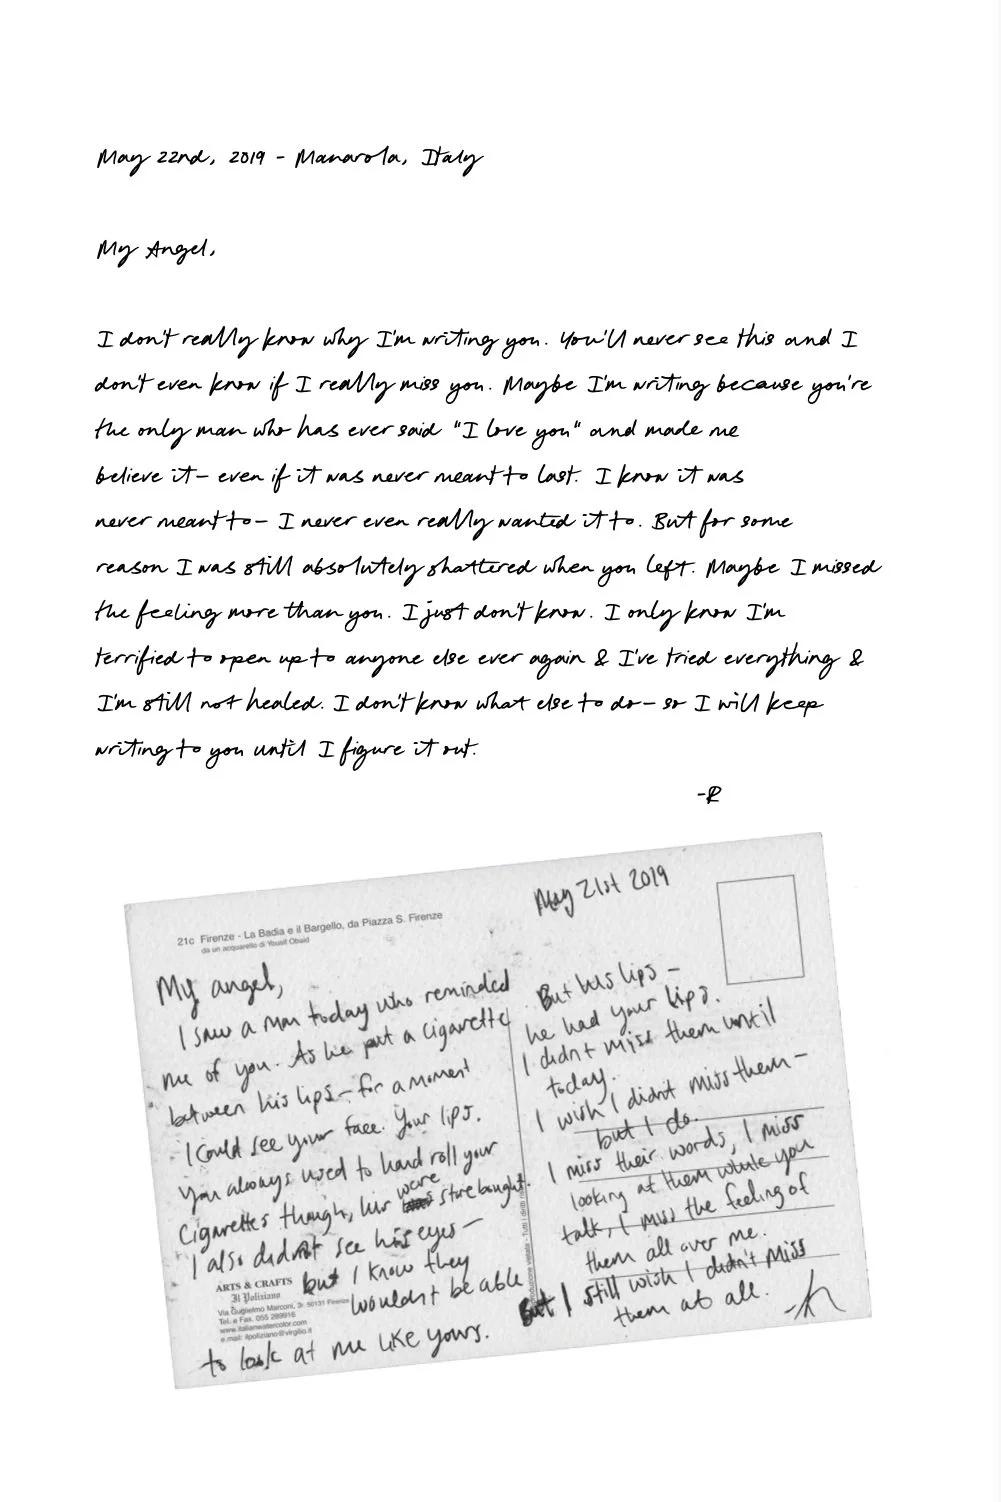 May 22nd, 2019 - Manarola, Italy
My Angel,
I don't really know why I'm writing you. You'll never see this and I
don't even know if I really miss you. Maybe I'm writing because you're
the only man who has ever said "I love you" and made me
believe it - even if it was never meant to last. I know it was
never meant to - I never even really wanted it to. But for some
reason I was still absolutely shattered when you left. Maybe I missed
the feeling more than you. I just don't know. I only know I'm
terrified to open up to anyone else ever again & I've tried everything &
I'm still not healed. I don't know what else to do - so I will keep
writing to you until I figure it out.
-R
21c Firenze - La Badia e il Bargello, da Piazza S. Firenze
da un acquarello di Yousif Obaid
My angel,
I saw a man today who reminded
me of you. As he put a cigarette
between his lips - for a moment
I could see your face. Your lips.
You always used to hand roll your
Cigarettes though, his were store bought.
I also didn't see his eyes -
but I know they
wouldn't be able
to look at me like yours.
ARTS & CRAFTS
Il Poliziano
Via Guglielmo Marconi, 3r 50131 Firenze
Tel. e Fax. 055 289916
www.italianwatercolor.com
e.mail: ilpoliziano@virgilio.it
vietata - Tutti i diritti
May 21st 2019
But his lips -
he had your lips.
I didn't miss them until
today.
I wish I didn't miss them -
but I do.
I miss their words, I miss
looking at them while you
talk, I miss the feeling of
them all over me.
But I still wish I didn't miss
them at all.